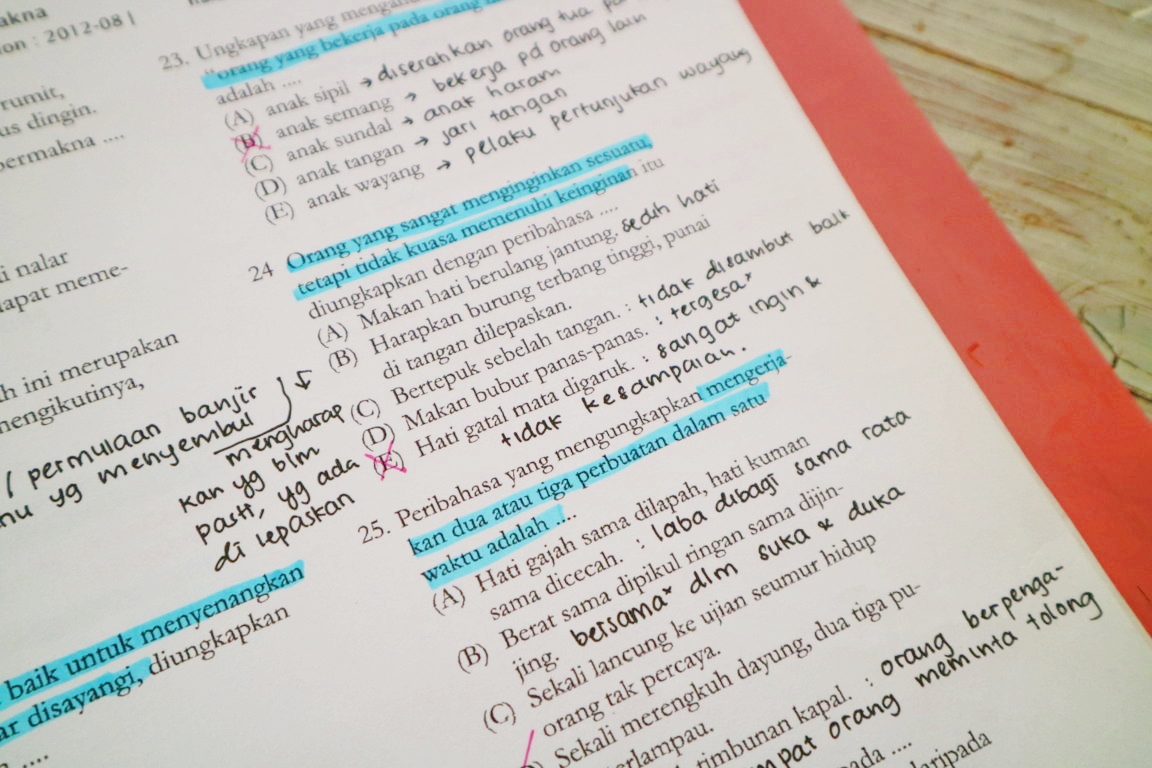 akna
on : 2012-08
rumit,
us dingin.
bermakna ....
i nalar
lapat meme-
h ini merupakan
mengikutinya,
( permulaan banjir
nu yg menyembul
mengharap
kan yg blm
pasti, yg ada
di lepaskan
baik untuk menyenangkan
ar disayangi, diungkapkan
....
23. Ungkapan yang
"orang yang bekerja pada orang
adalah ....
(A) anak sipil → diserahkan orang tua
(B) anak semang → bekerja pd orang lain
(C) anak sundal → anak haram
(D) anak tangan → jari tangan
(E) anak wayang → pelaku pertunjukan wayang
24 Orang yang sangat menginginkan sesuatu,
tetapi tidak kuasa memenuhi keinginan itu
diungkapkan dengan peribahasa ....
(A) Makan hati berulang jantung. sedih hati
(B) Harapkan burung terbang tinggi, punai
di tangan dilepaskan.
(C) Bertepuk sebelah tangan. : tidak disambut baik
(D) Makan bubur panas-panas. : tergesa"
(E) Hati gatal mata digaruk. : sangat ingin &
tidak kesampaian.
25. Peribahasa yang mengungkapkan mengerja-
kan dua atau tiga perbuatan dalam satu
waktu adalah ....
(A) Hati gajah sama dilapah, hati kuman
sama dicecah. : laba dibagi sama rata
(B) Berat sama dipikul ringan sama dijin-
jing. bersama" dlm suka & duka
(C) Sekali lancung ke ujian seumur hidup
orang tak percaya.
Sekali merengkuh dayung, dua tiga pu-
terlampau.
timbunan kapal. : orang berpenga-
mpat orang meminta tolong
pada ....
daripada